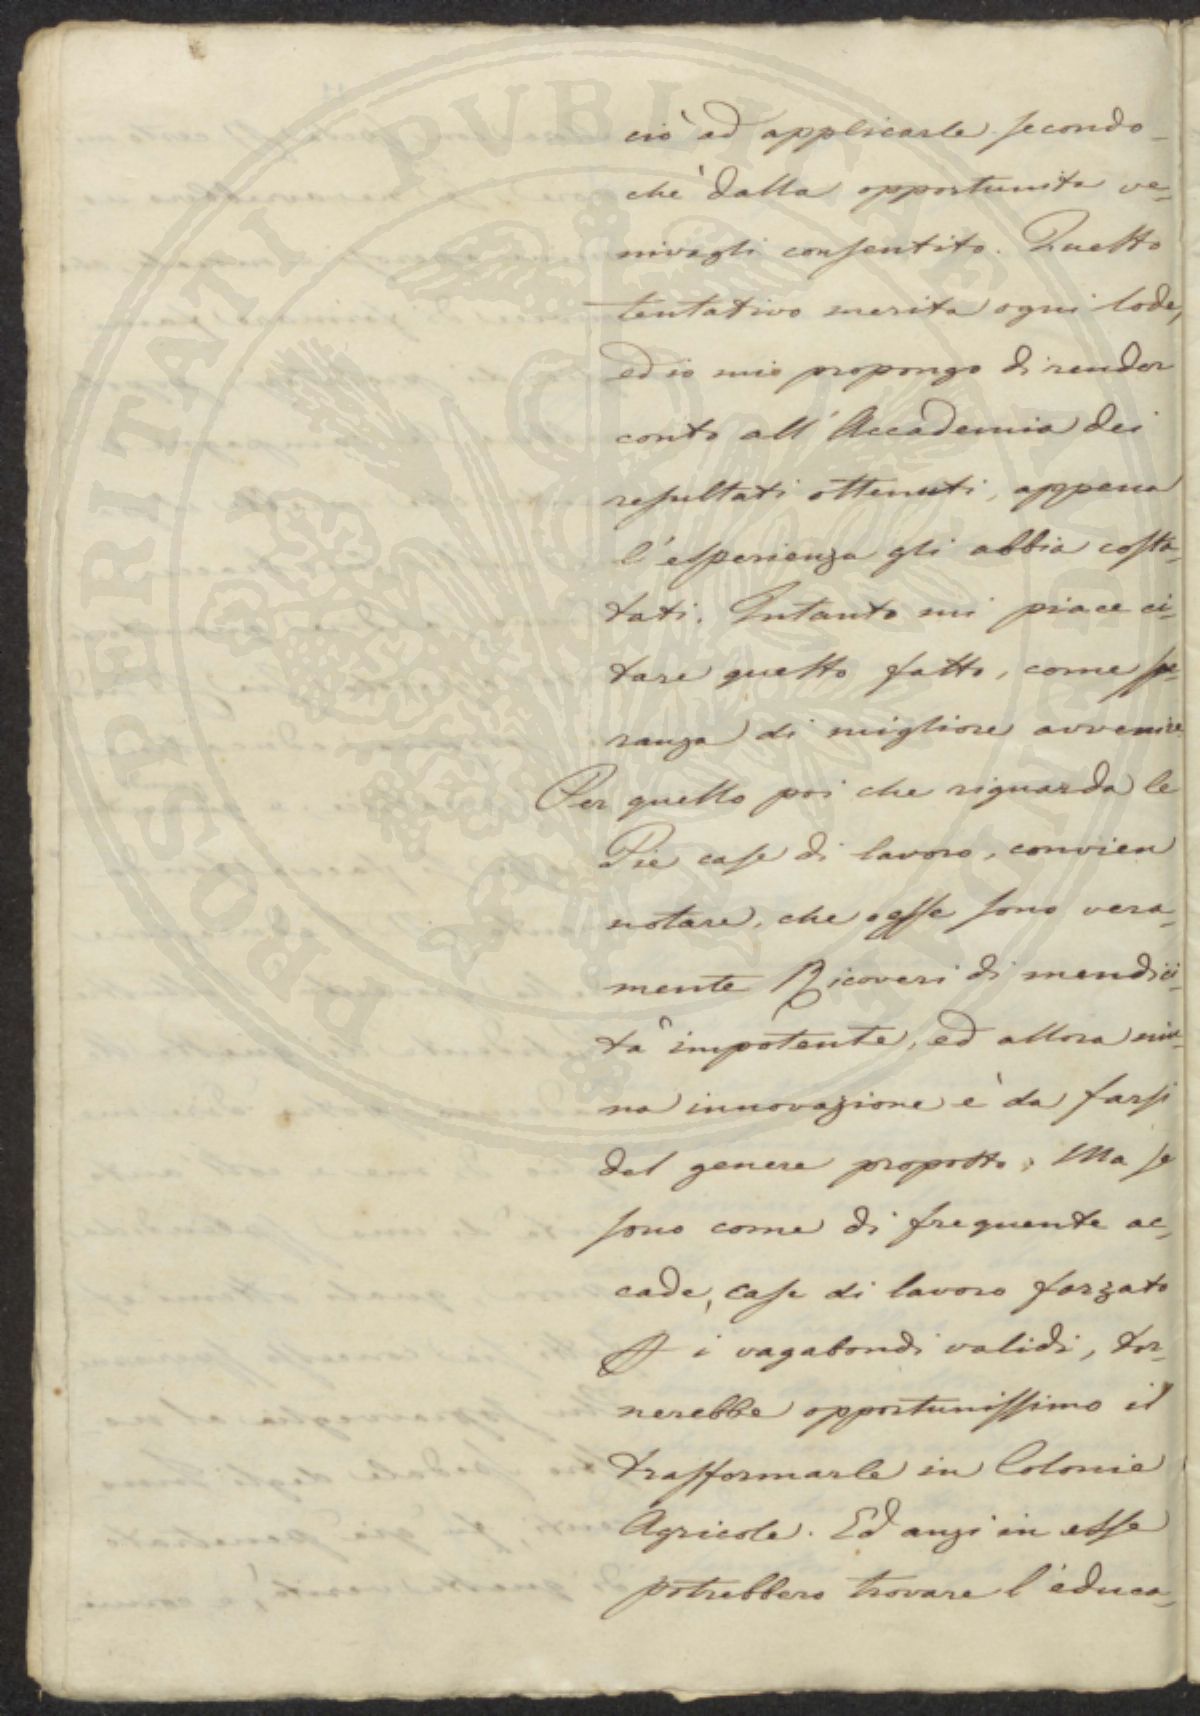 ciò ad applicarle secondo
chè dalla opportunità ve-
nivagli consentito. Questo
tentativo merita ogni lode,
ed io mio propongo di render
conto all'Accademia dei
resultati ottenuti, appena
l'esperienza gli abbia costa-
tati. Intanto mi piace ci-
tare questo fatto, come spe-
ranza di migliore avvenire.
Per quello poi che riguarda le
Pie case di lavoro, convien
notare, che esse sono vera-
mente Ricoveri di mendici-
tà impotente, ed allora niu-
na innovazione è da farsi
del genere proposto; Ma se
sono come di frequente ac-
cade, case di lavoro forzato
i vagabondi validi, tor-
nerebbe opportunissimo il
trasformarle in Colonie
Agricole. Ed anzi in esse
potrebbero trovare l'educa-
PROSPERITATI PVBLICAE AVGENDAE